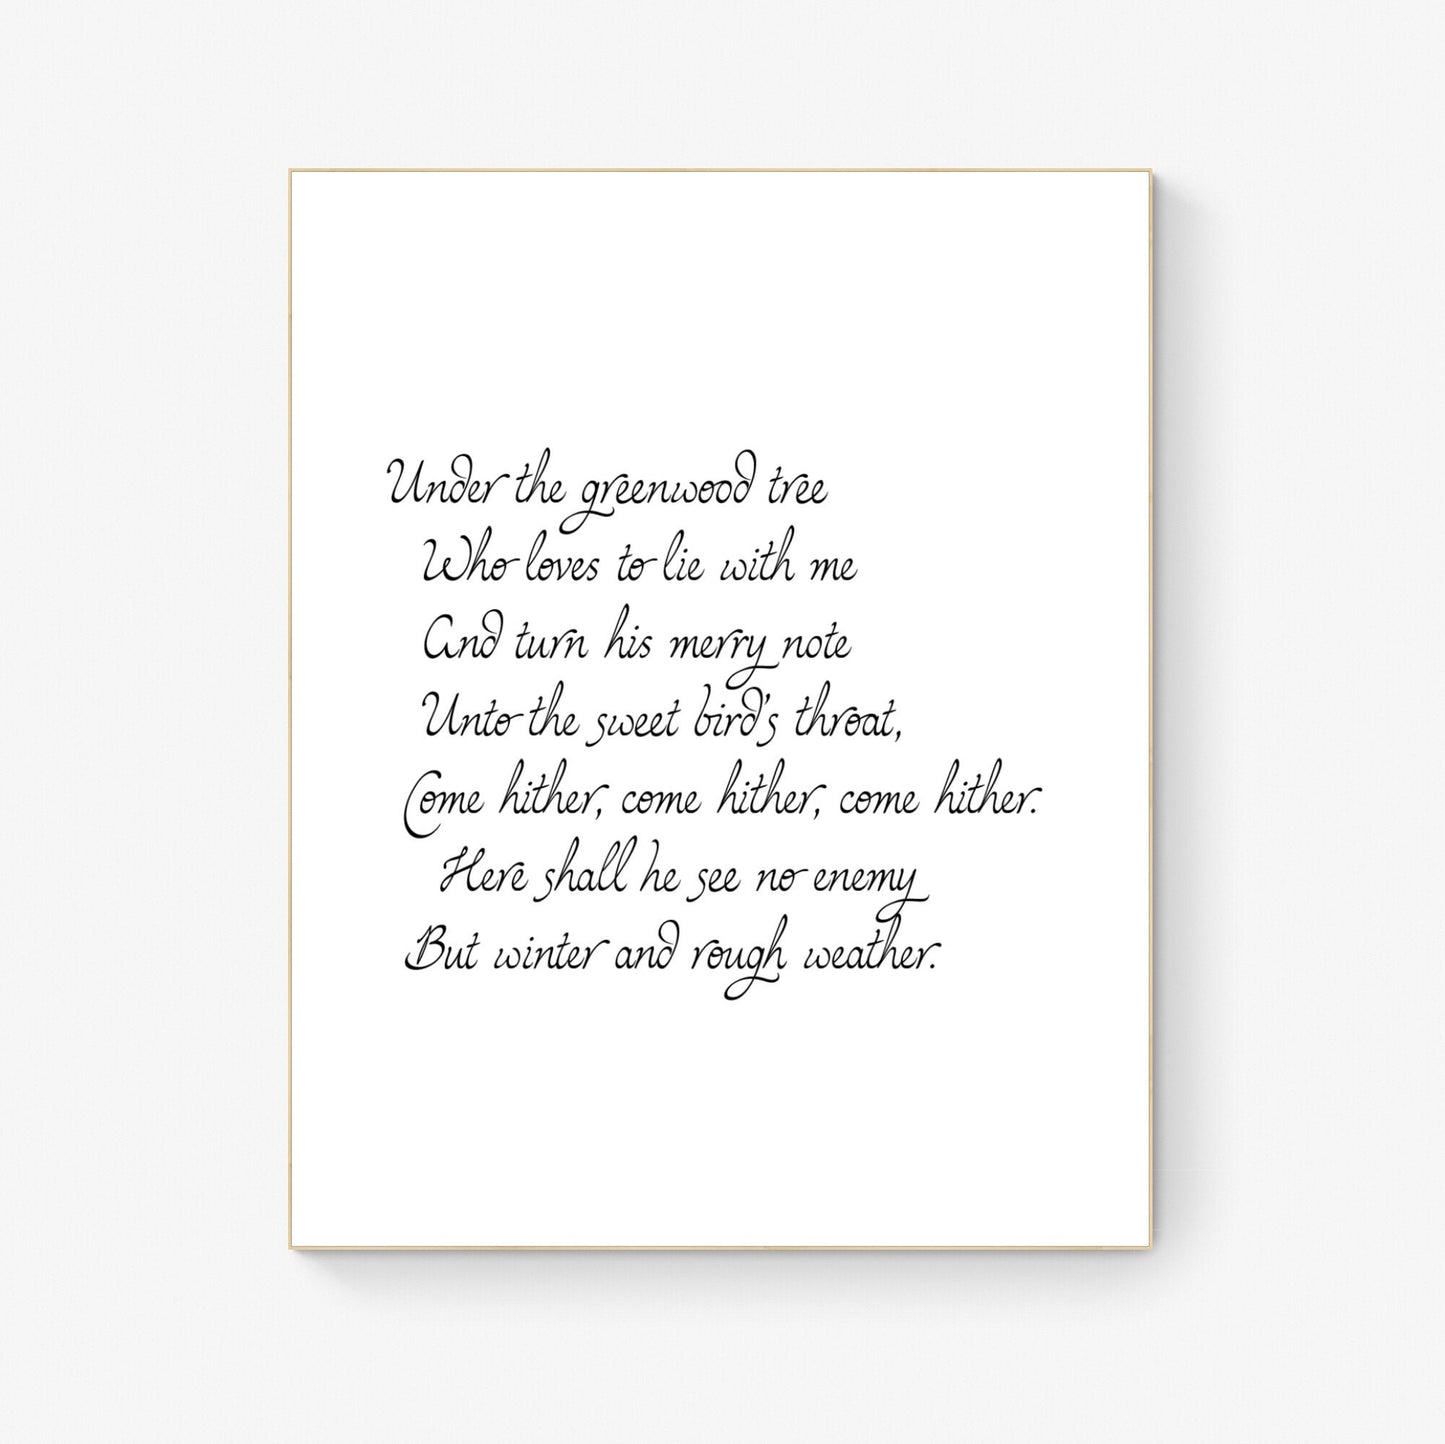 Under the greenwood tree
Who loves to lie with me
And turn his merry note
Unto the sweet bird's throat,
Come hither, come hither, come hither.
Here shall he see no enemy
But winter and rough weather.